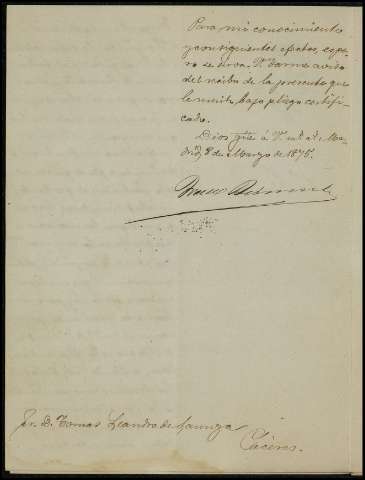 Para mi conocimiento
y consiguientes efectos, espe-
ro se sirva V. darme aviso
del recibo de la presente que
le remito bajo pliego certifi-
cado.
Dios gũe á V. m.s a.s Ma-
drid 8 de Marzo de 1875.
Sr. D. Tomas Leandro de
Cáceres.